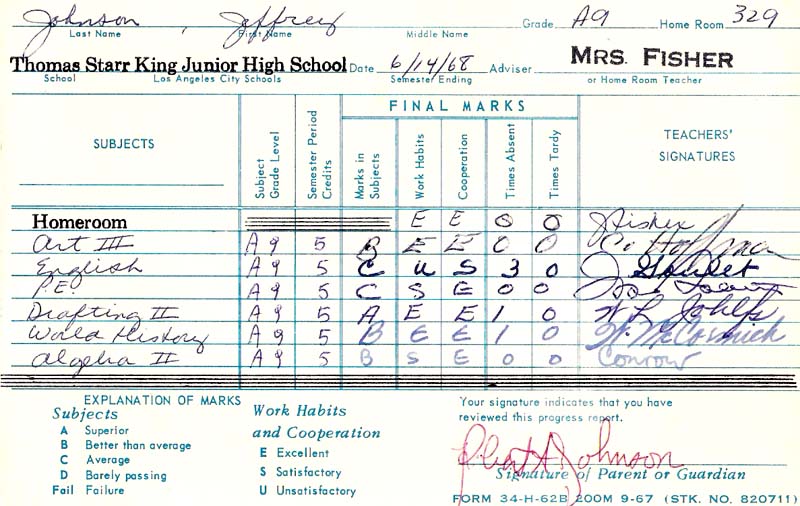 Johnson, Jeffrey Grade A9 Home Room 329
Last Name First Name Middle Name
Thomas Starr King Junior High School Date 6/14/68 Adviser MRS. FISHER
School Los Angeles City Schools Semester Ending or Home Room Teacher
FINAL MARKS
SUBJECTS Subject Grade Level Semester Period Credits Marks in Subjects Work Habits Cooperation Times Absent Times Tardy TEACHERS' SIGNATURES
Homeroom E E 0 0 J Fisher
Art III A9 5 B E E 0 0 Hoffman
English A9 5 C U S 3 0
P.E. A9 5 C S E 0 0
Drafting II A9 5 A E E 1 0
World History A9 5 B E E 1 0 W. McCormick
Algebra II A9 5 B S E 0 0 Conrow
EXPLANATION OF MARKS
Subjects
A Superior
B Better than average
C Average
D Barely passing
Fail Failure
Work Habits
and Cooperation
E Excellent
S Satisfactory
U Unsatisfactory
Your signature indicates that you have
reviewed this progress report.
Robert A Johnson
Signature of Parent or Guardian
FORM 34-H-62B 200M 9-67 (STK. NO. 820711)